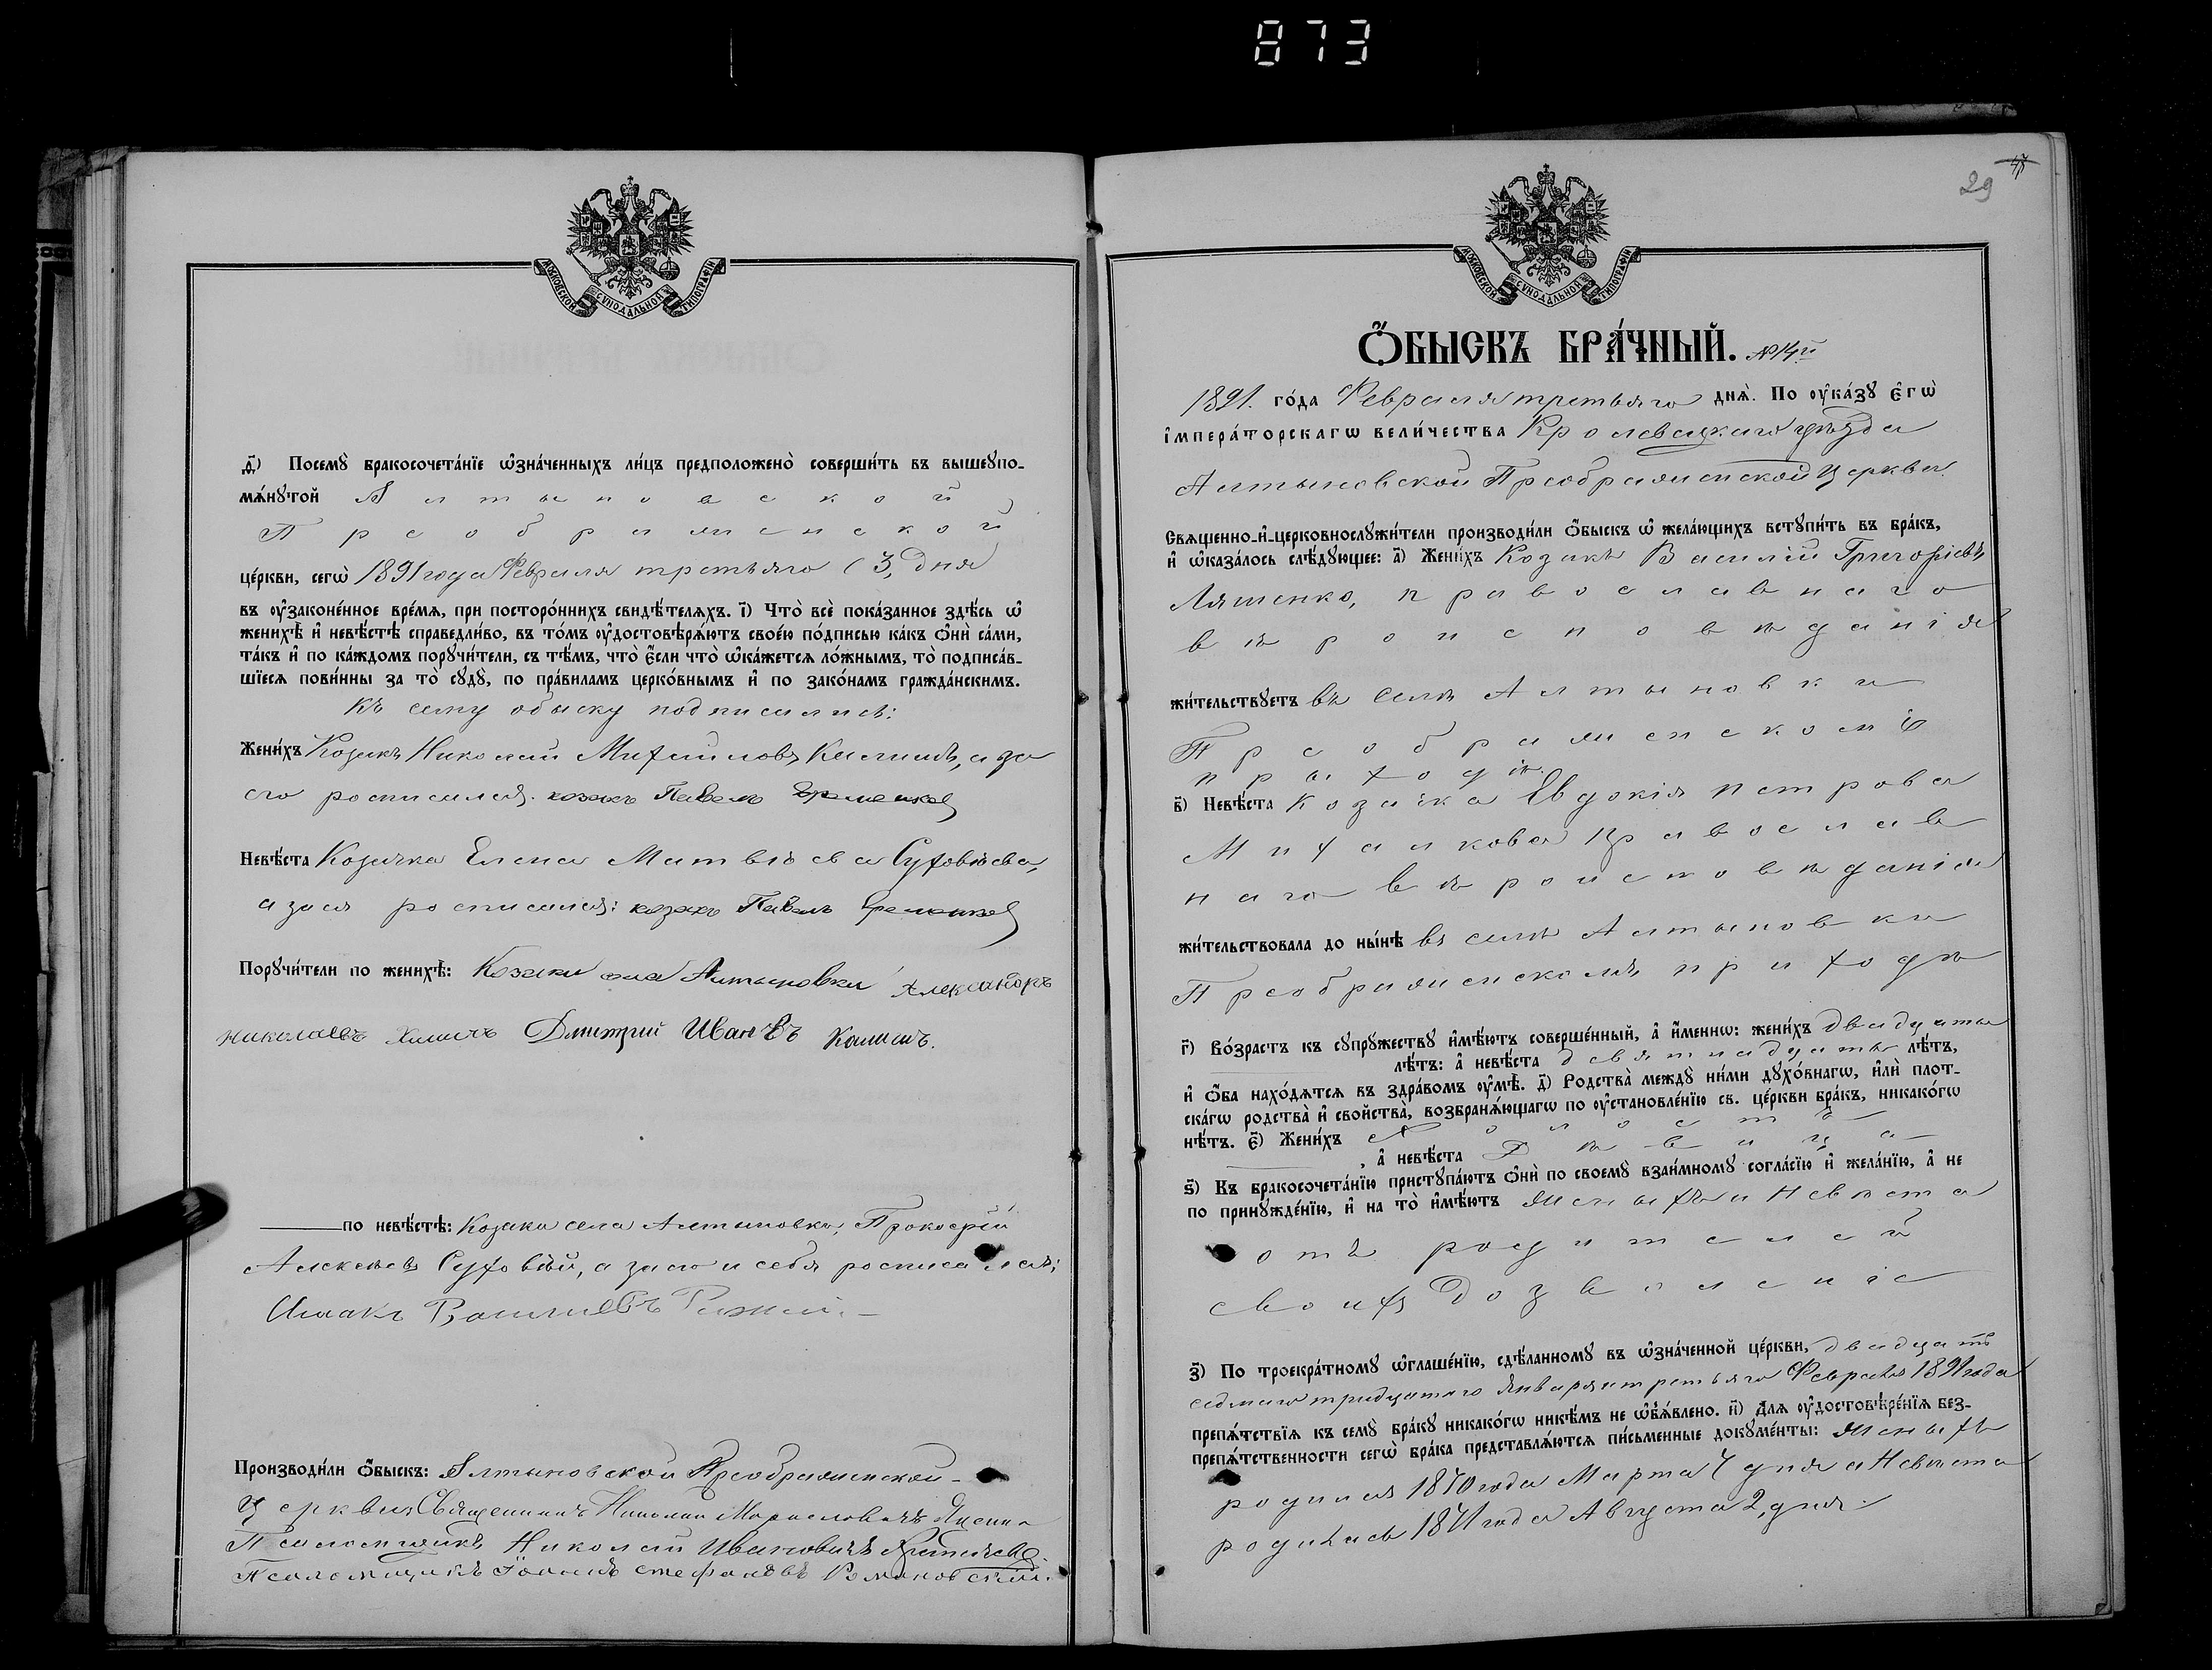 873
МОСКОВСКОЙ СѴНОДАЛЬНОЙ ТИПОГРАФІИ
ѳ҃) Посемꙋ̀ бракосочета́нїе ѡ҆зна́ченныхъ ли́цъ предположено̀ соверши́ть въ вышеупо-
мѧ́нꙋтой Алтыновской
Преображенской
це́ркви, сегѡ̀ 1891 года Февраля третьяго (3, дня)
въ ᲂу҆зако́нное вре́мѧ, при посторо́ннихъ свидѣ́телѧхъ. і҃) Что̀ всѐ пока́занное здѣ́сь ѡ҆
женихѣ̀ и҆ невѣ́стѣ справедли́во, въ то́мъ ᲂу҆достовѣрѧ́ютъ свое́ю по́дписью ка́къ ѻ҆нѝ са́ми,
та́къ и҆ по ка́ждомъ порꙋчи́тели, съ тѣ́мъ, что̀ є҆́сли что̀ ѡ҆ка́жетсѧ ло́жнымъ, то̀ подписа́в-
шїесѧ пови́нны за то̀ сꙋдꙋ̀, по пра́виламъ церко́внымъ и҆ по зако́намъ гражда́нскимъ.
Къ сему обыску подписались:
Жени́хъ Козакъ Николай Михайловъ Калишъ, а за
его росписался. козакъ Павелъ Еременко
Невѣ́ста Козачка Елена Матвѣева Суховѣева,
а за ея росписался: козакъ Павелъ Еременко
Порꙋчи́тели по женихѣ̀: Козаки села Алтыновки Александръ
Николаевъ Дмитрий Иванъвъ Калишъ.
по невѣ́стѣ: Козаки села Алтыновки, Прокофій
Алексѣевъ Суховѣй, а за его и себя росписался;
Исаакъ Василиевъ
Производи́ли ѻ҆́быскъ: Алтыновской Преображенской
Церкви Священникъ Николай
Псаломщикъ Николай Ивановичъ
Псаломщикъ Іоаннъ Стефановъ Романовскій.
29
МОСКОВСКОЙ СѴНОДАЛЬНОЙ ТИПОГРАФІИ
Ѻ҆́БЫСКЪ БРА́ЧНЫЙ. №14й
1891. го́да Февраля третьяго днѧ̀. По ᲂу҆ка́зꙋ є҆гѡ̀
і҆мпера́торскагѡ вели́чества Кролевецкаго уѣзда
Алтыновской Преображенской Церкви
Свѧщенно-и҆-церковнослꙋжи́тели производи́ли ѻ҆́быскъ ѡ҆ жела́ющихъ встꙋпи́ть въ бра́къ,
и҆ ѡ҆каза́лось слѣ́дꙋющее: а҃) Жени́хъ Козакъ Василій Григоріевъ
Ляшенко, православнаго
вѣроисповѣданія
жи́тельствꙋетъ въ селѣ Алтыновки
Преображенскомъ
приходѣ
в҃) Невѣ́ста Козачка Евдокія Петрова
Михалкова православ
наго вѣроисповѣданія
жи́тельствовала до ны́нѣ въ селѣ Алтыновки
Преображенскомъ приходѣ
г҃) Во́зрастъ къ сꙋпрꙋ́жествꙋ и҆мѣ́ютъ соверше́нный, а҆ и҆́менно: жени́хъ двадцать
лѣ́тъ: а҆ невѣ́ста девятнадцать лѣ́тъ,
и҆ ѻ҆́ба нахо́дѧтсѧ въ здра́вомъ ᲂу҆мѣ̀. д҃) Родства̀ междꙋ̀ ни́ми дꙋхо́внагѡ, и҆лѝ плот-
ска́гѡ родства̀ и҆ свойства̀, возбранѧ́ющагѡ по ᲂу҆становле́нїю св. це́ркви бра́къ, никако́гѡ
нѣ́тъ. є҃) Жени́хъ Холостъ
, а҆ невѣ́ста Дѣвица
ѕ҃) Къ бракосочета́нїю пристꙋпа́ютъ ѻ҆нѝ по своемꙋ̀ взаи́мномꙋ согла́сїю и҆ жела́нїю, а҆ не
по принꙋжде́нїю, и҆ на то̀ и҆мѣ́ютъ Женыхъ и Невѣста
отъ родителей
своихъ дозволеніе
з҃) По троекра́тномꙋ ѡ҆глаше́нїю, сдѣ́ланномꙋ въ ѡ҆зна́ченной це́ркви, двадцать
седмаго тридцатаго Января и третьяго Февраля 1891 года
препѧ́тствїѧ къ семꙋ̀ бра́кꙋ никако́гѡ никѣ́мъ не ѡ҆б̾ѧ́влено. и҃) Длѧ ᲂу҆достовѣре́нїѧ без-
препѧ́тственности сегѡ̀ бра́ка представлѧ́ютсѧ пи́сьменные докꙋме́нты: Женыхъ
родился 1870 года Марта 4 дня а Невѣста
родилась 1871 года Августа 2, дня.